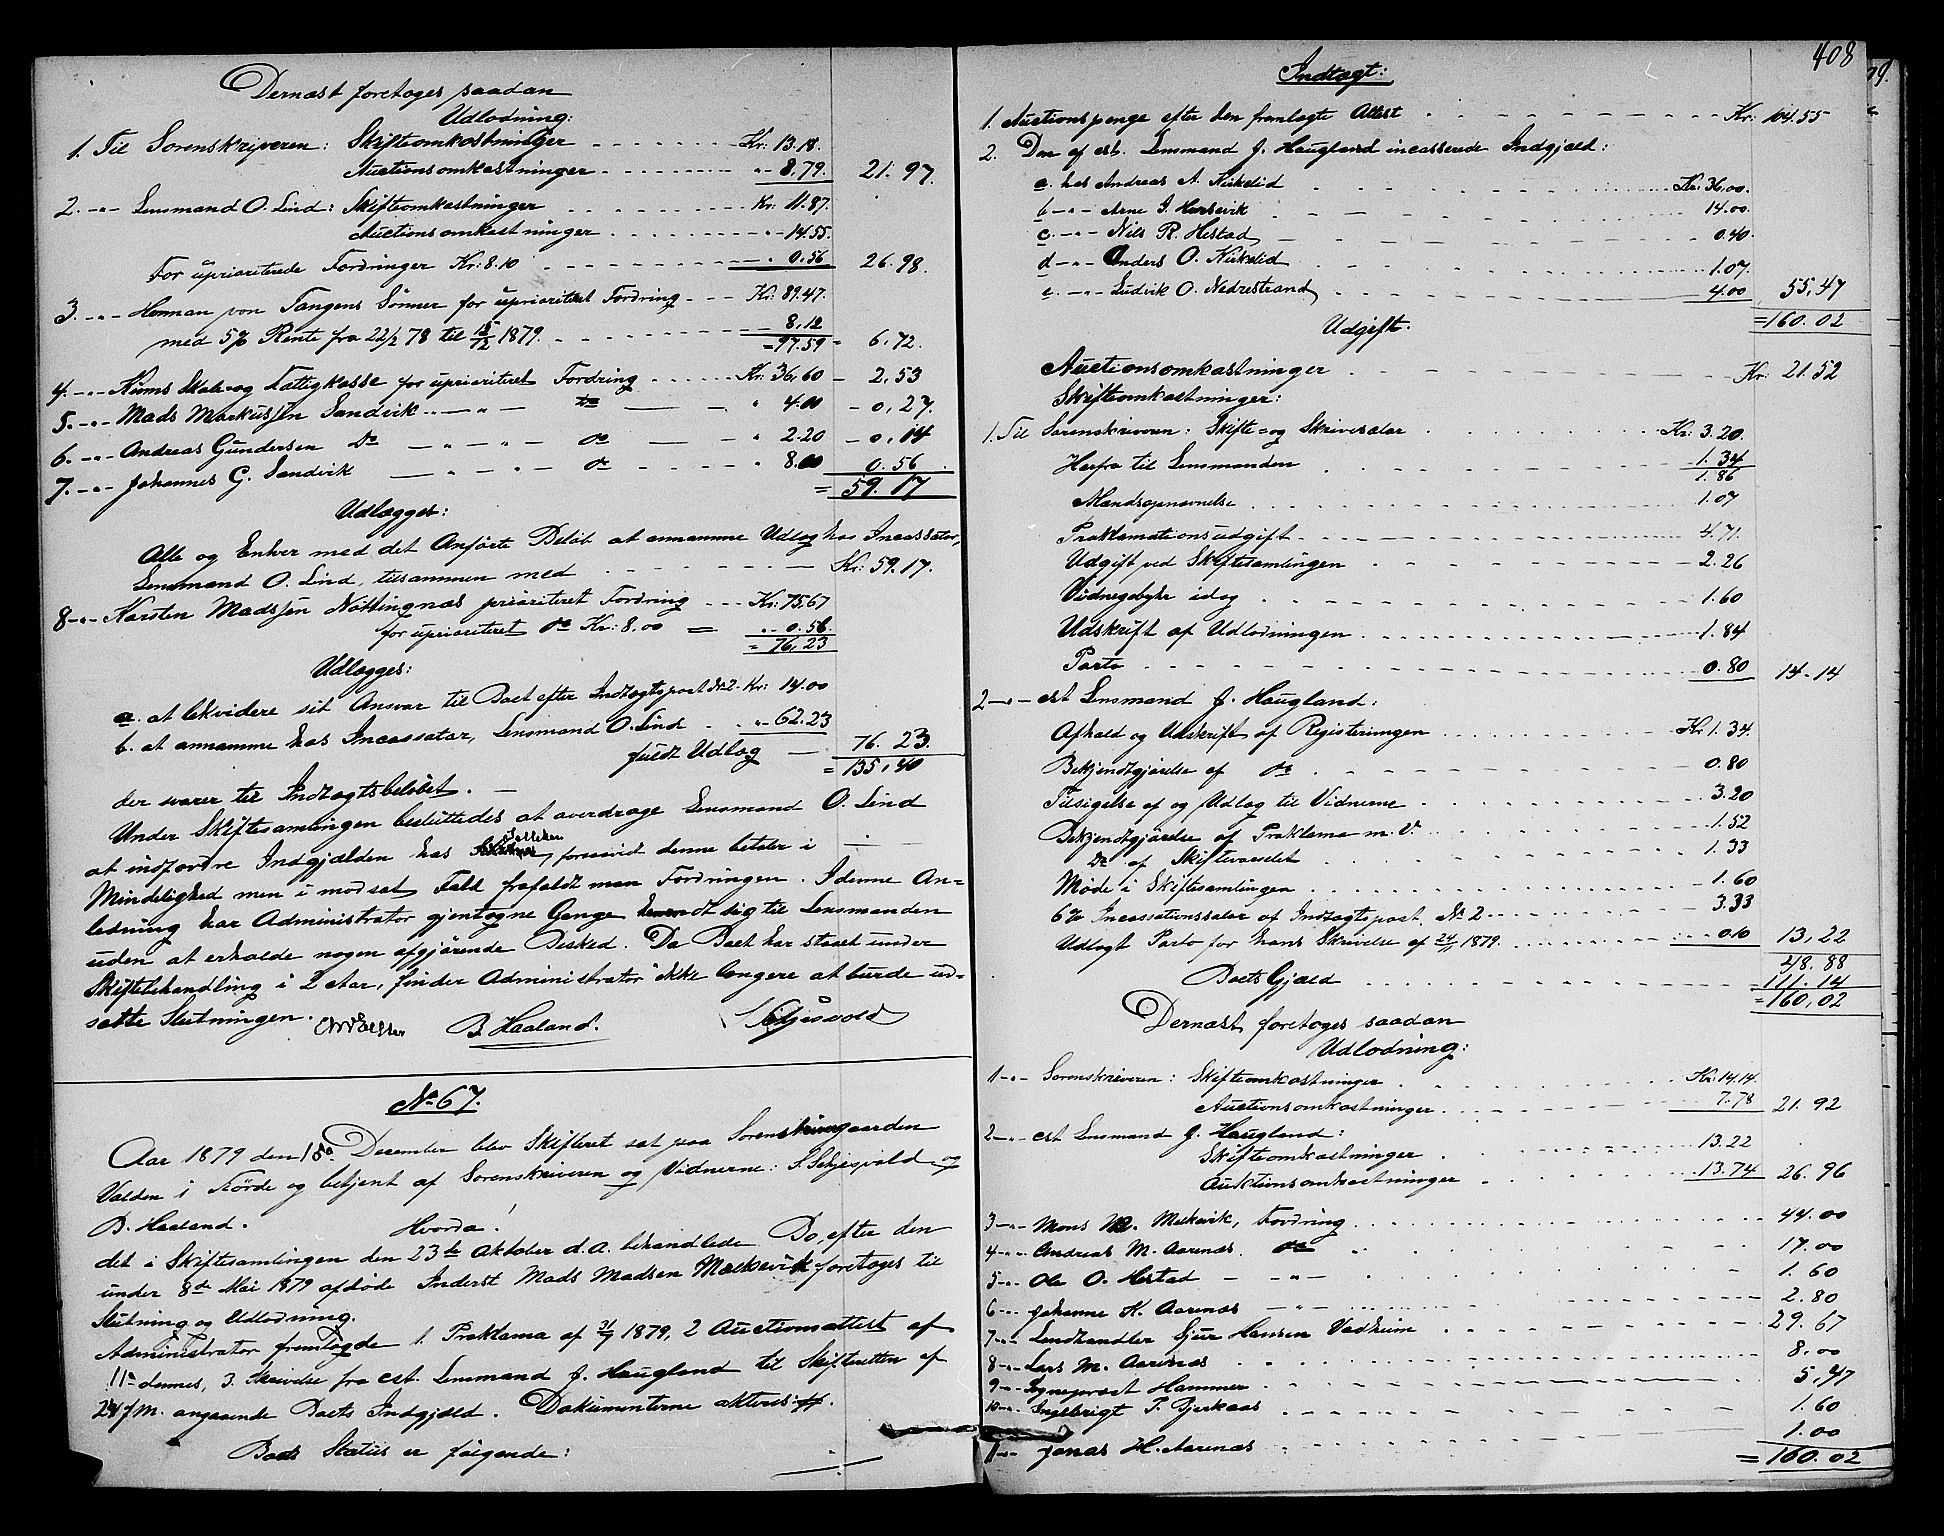 Dernæst foretoges saadan
Udlodning:
1. Til Sorenskriveren: Skifteomkostninger Kr: 13.18.
Auctionsomkostninger " 8.79. 21.97.
2. -"- Lensmand O. Lind: Skifteomkostninger Kr: 11.87.
Auctionsomkostninger " 14.55.
For uprioriterede Fordringer Kr: 8.10 " 0.56 26.98.
3. -"- Herman von Tangens Sønner for uprioriteret Fordring Kr: 89.47.
med 5% Rente fra 22/2 78 til 18/12 1879. 8.12
= 97.59 = 6.72.
4. -"- Kinns Skole- og Fattigkasse for uprioriteret Fordring Kr: 36,60 - 2,53
5. -"- Mads Markussen Sandvik -"- do " 4.00 - 0,27.
6. -"- Andreas Gundersen do -"- -"- do " 2.20 - 0,14
7. -"- Johannes G. Sandvik -"- -"- do " 8.00 0.56.
= 59.17
Udlægges:
Alle og Enhver med det Anførte Beløb at annamme Udlæg hos Incassator,
Lensmand O. Lind, tilsammen med Kr: 59.17.
8 -"- Karsten Madssen Nöttingnæs prioriteret Fordring Kr: 75,67
for uprioriteret do Kr: 8,00 = " 0.56.
= 76,23
Udlægges:
a. at likvidere sit Ansvar til Boet efter Indtægtspost No 2. Kr: 14.00
b. at annamme hos Incassator, Lensmand O. Lind " 62.23
fuldt Udlæg 76.23.
= 135,40
der svarer til Indtægtsbeløbet. —
Under Skiftesamlingen besluttedes at overdrage Lensmand O. Lind
at indfordre Indgjælden hos , forsaavidt denne betaler i
Mindelighed men i modsat Fald frafaldt man Fordringen. I denne An=
ledning har Administrator gjentagne Gange henvendt sig til Lensmanden
uden at erholde nogen afgjørende Besked. Da Boet har staaet under
Skiftebehandling i 2 Aar, finder Administrator ikke længere at burde ud=
sætte Slutningen.
B. Haaland.
No 67.
Aar 1879 den 18de December blev Skifteret sat paa Sorenskrivergaarden
Valden i Förde og betjent af Sorenskriveren og Vidnerne: S. Seljesvold og
B. Haaland. Hvorda!
det i Skiftesamlingen den 23de Oktober d.A. behandlede Bo, efter den
under 8de Mai 1879 afdöde Inderst Mads Madsen Melkevik foretoges til
Slutning og Udlodning.
Administrator fremlagde 1. Proklama af 31/7 1879, 2 Auctionsattest af
11te dennes, 3. Skrivelse fra cst. Lensmand J. Haugland til Skifteretten af
24/f.M. angaaende Boets Indgjæld. Dokumenterne akteres.
Boets Status er følgende:
408
Indtægt:
1. Auctionspenge efter den fremlagte Attest Kr: 104.55
2. Den af cst. Lensmand J. Haugland incasserede Indgjæld:
a. hos Andreas A. Kirkelid Kr: 36,00.
b -"- Arne I. Hersvik 14.00.
c. -"- Nils R. Hestad 0.40.
d -"- Anders O. Kirkelid 1.07.
e. -"- Ludvik O. Nedrestrand 4.00 55,47
= 160.02
Udgift.
Auctionsomkostninger Kr: 21.52
Skifteomkostninger:
1. Til Sorenskriveren: Skifte= og Skriversalar Kr: 3.20.
Herfra til Lensmanden 1.34
1.86
Mandsopnævnelse 1.07
Proklamationsudgift 4.71.
Udgift ved Skiftesamlingen 2.26
Vidnegebyhr idag 1.60
Udskrift af Udlodningen 1.84
Porto 0.80 14.14
2 -"- cst Lensmand J. Haugland:
Afhold og Udskrift af Registreringen Kr 1.34.
Bekjendtgjörelse af do 0.80
Tilsigelse af og Udlæg til Vidnerne 3.20
Bekjendtgjörelse af Proklama m.V. 1.52
do af Skiftevarselet 1.33
Møde i Skiftesamlingen 1.60
6% Incassationssalar af Indtægtspost No 2 3.33
Udlagt Porto for hans Skrivelse af 24/11 1879. 0.10 13,22
48.88
Boets Gjæld 111.14
= 160,02
Dernæst foretoges saadan
Udlodning:
1 -"- Sorenskriveren: Skifteomkostninger Kr: 14.14.
Auctionsomkostninger 7.78 21.92
2 -"- cst Lensmand J. Haugland:
Skifteomkostninger 13.22
Auktionsomkostninger 13.74 26.96
3 -"- Mons M. Melkevik, Fordring 44.00
4 -"- Andreas M. Aarenæs. do " 17.00
5 -"- Ole O. Hestad -"- 1.60
6 -"- Johanne K. Aarenæs -"- 2.80
7 -"- Landhandler Sjur Hansen Vadheim 29.67
8 -"- Lars M. Aarenæs 8.00
9 -"- Sogneprest Hammer 5,47
10 -"- Ingebrigt T. Bjerkaas 1.60
11 -"- Jonas H. Aarenæs 1.00
= 160.02